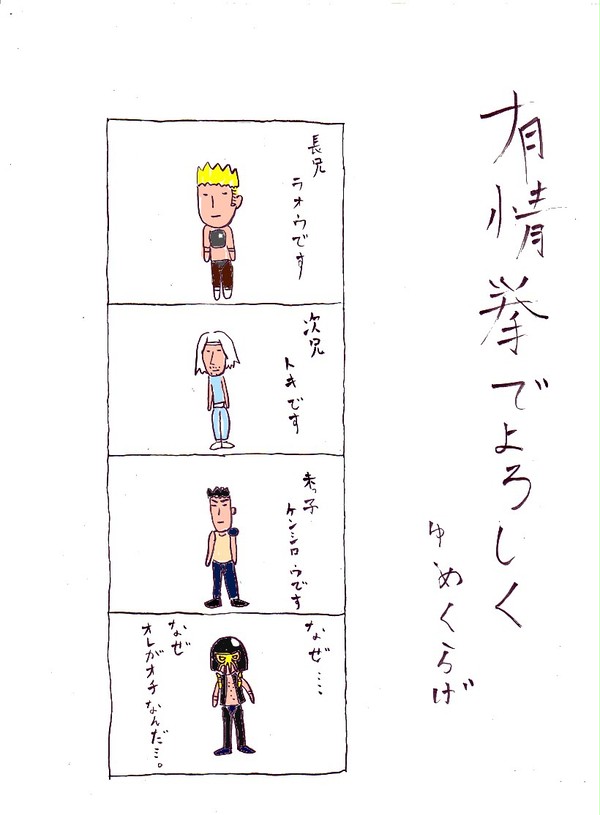 有情拳でよろしく
ゆめくらげ
長兄
ラオウです
次兄
トキです
末っ子
ケンシロウです
なぜ…
なぜ
オレがオチなんだ…。